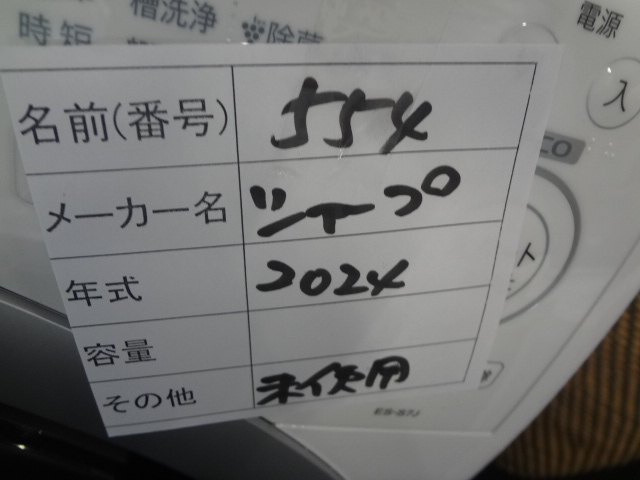 槽洗浄
時短
除菌
電源
入
名前(番号) 554
メーカー名 シャープ
年式 2024
容量
その他 未使用
ES-S7J